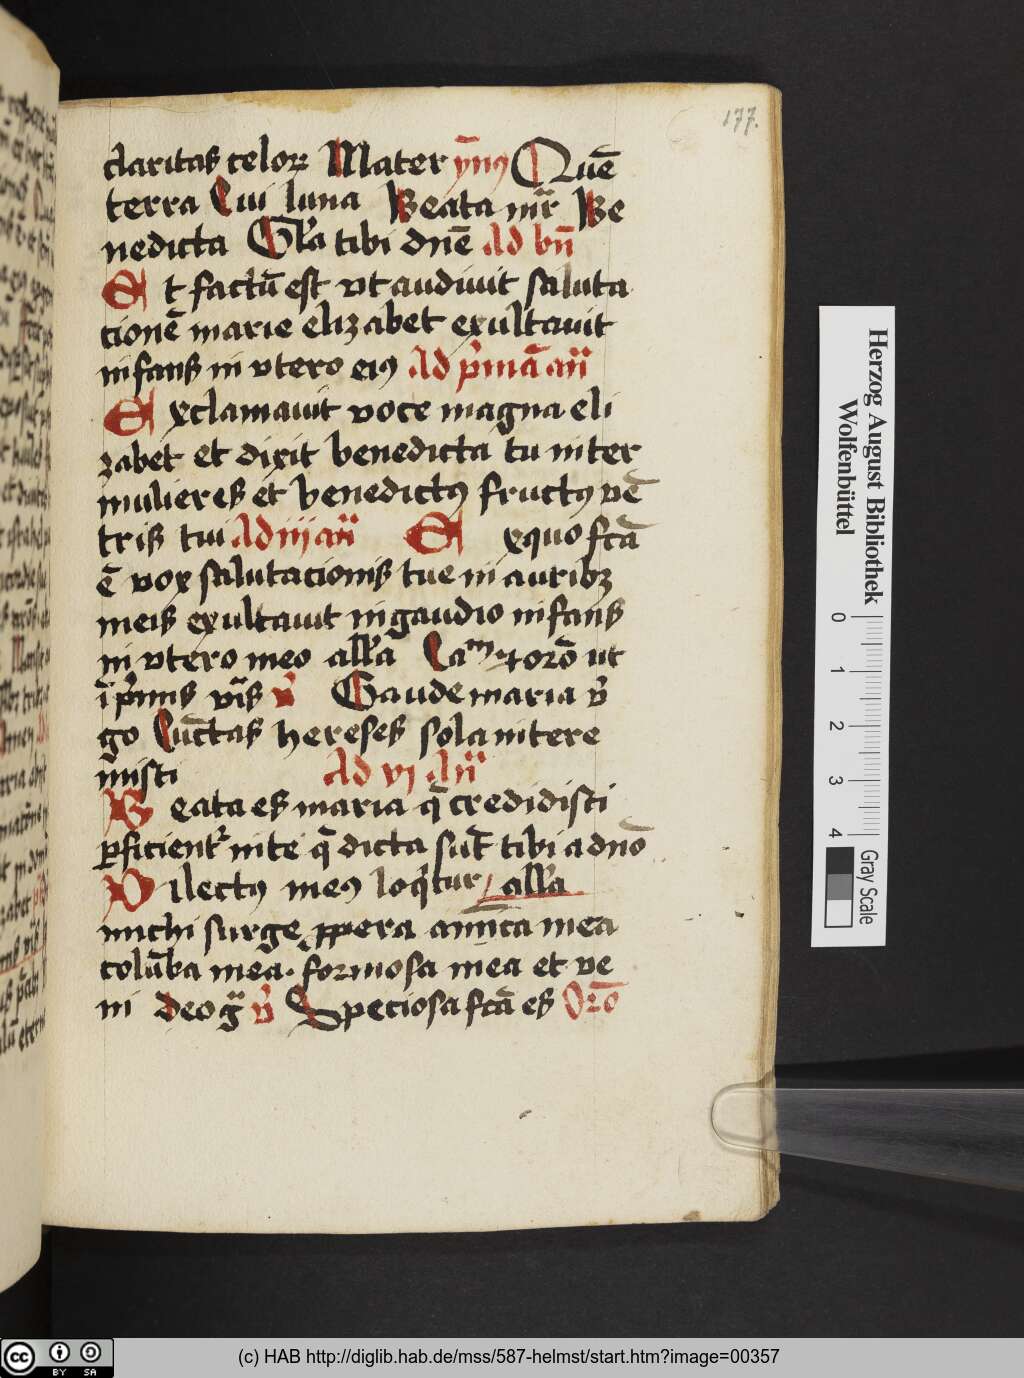 177.
claritas celoꝝ Mater ym̅9 Que̅
terra Cui luna Beata mr̅ Be
nedicta Gl'a tibi dn̅e Ad bn̅
Et factu̅ est vt audiuit saluta
cione̅ marie elizabet exultauit
infans in vtero ei9 Ad p'ma̅ an̅
Exclamauit voce magna eli
zabet et dixit benedicta tu inter
mulieres et benedict9 fruct9 ve̅
tris tui Ad iij an̅ Ex quo fca̅
e̅ vox salutacionis tue in auribꝫ
meis exultauit in gaudio infans
in vtero meo all'a Cam
i̅ p'mis vi̅s v̅ Gaude maria v̅
go Cu̅ctas hereses sola intere
misti Ad vj An̅
Beata es maria q̅ credidisti
ꝑficient' in te q̅ dicta su̅t tibi a dn̅o
Dilect9 me9 loq'tur all'a
michi surge ꝓpera amica mea
colu̅ba mea. formosa mea et ve
ni deo gr̅ v̅ Speciosa fca̅ es Oro̅
Herzog August Bibliothek
Wolfenbüttel
0 1 2 3 4
Gray Scale
cc BY SA
(c) HAB http://diglib.hab.de/mss/587-helmst/start.htm?image=00357